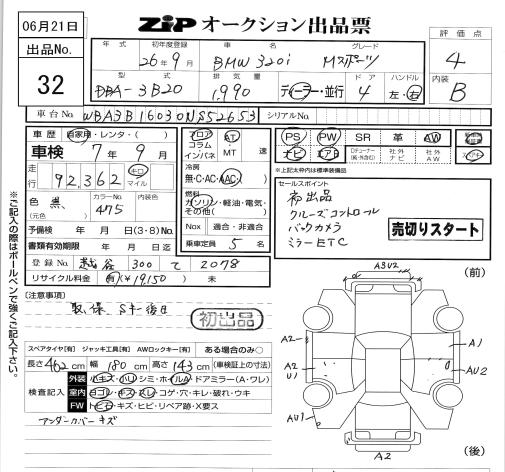 06月21日
ZiP オークション出品票
出品No.
32
年式 初年度登録 車名 グレード
26年9月 BMW 320i Mスポーツ
評価点
4
型式 排気量 ドア ハンドル
DBA-3B20 1,990 ディーラー・並行 4 左・右
内装
B
車台No. WBA3B16030NS52653 シリアルNo.
車歴 自家用・レンタ・( )
車検 7年9月
走行 92,362 キロ マイル
色 黒 カラーNo. 475 内装色
(元色)
予備検 年 月 日(3・8)No.
書類有効期限 年 月 日迄
登録No. 越谷 300 て 2078
リサイクル料金 有(¥19,150) 未
フロア コラム インパネ AT・MT 速
冷房
無・C・AC・AAC
燃料
ガソリン・軽油・電気・その他( )
Nox 適合・非適合
乗車定員 5 名
PS PW SR 革 AW
ナビ エアB Dチューナー(純・外含む) 社外ナビ 社外AW
*上記太枠内は標準装備品
セールスポイント
初出品
クルーズコントロール
バックカメラ
ミラーETC
売切りスタート
※ご記入の際はボールペンで強くご記入下さい。
注意事項
取、保、Sキー後日
初出品
スペアタイヤ[有] ジャッキ工具[有] AWロックキー[有] ある場合のみ○
長さ462cm 幅180cm 高さ143cm (車検証上の寸法)
検査記入
外装 小キズ・小ハリ・シミ・ホイルA・ドアミラー(A・ワレ)
室内 ヨゴレ・キズ・スレ・コゲ・穴・キレ・破れ・ウキ
FW トビ石・キズ・ヒビ・リペア跡・X要ス
アンダーカバーキズ
(前)
A3U2
A2
A1
A2
U1
AU2
AU1
A2
(後)